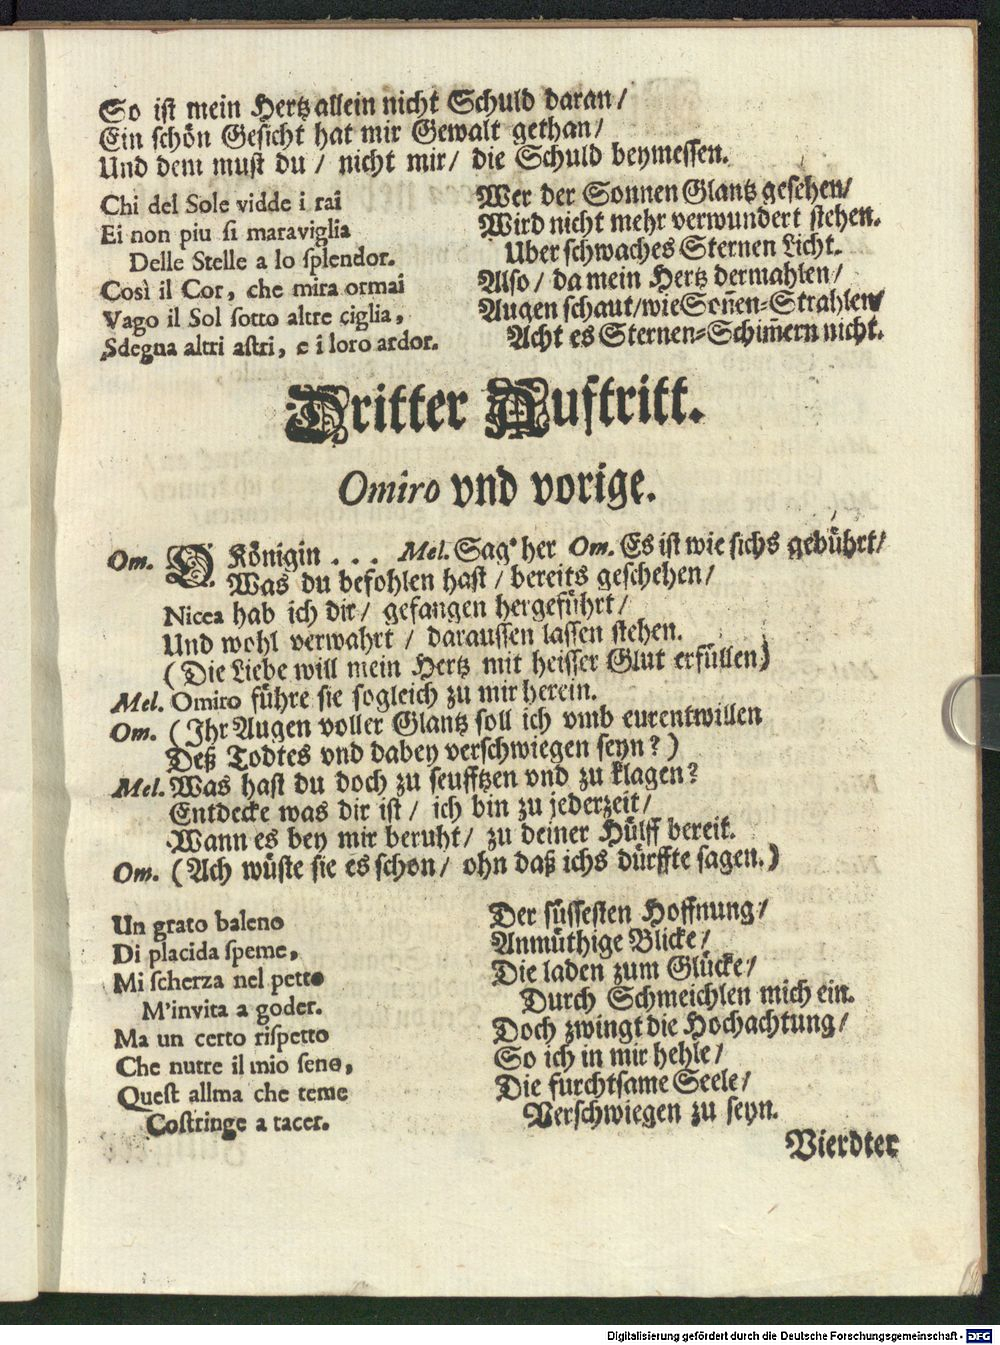 So ist mein Hertz allein nicht Schuld daran /
Ein schön Gesicht hat mir Gewalt gethan /
Und dem must du / nicht mir / die Schuld beymessen.
Chi del Sole vidde i rai
Ei non piu si maraviglia
Delle Stelle a lo splendor.
Così il Cor, che mira ormai
Vago il Sol sotto altre ciglia,
Sdegna altri astri, e i loro ardor.
Wer der Sonnen Glantz gesehen /
Wird nicht mehr verwundert stehen.
Uber schwaches Sternen Licht.
Also / da mein Hertz dermahlen /
Augen schaut / wie Soñen-Strahlen /
Acht es Sternen-Schim̃ern nicht.
Dritter Auftritt.
Omiro vnd vorige.
Om. O Königin . . . Mel. Sag' her Om. Es ist wie sichs gebührt /
Was du befohlen hast / bereits geschehen /
Nicea hab ich dir / gefangen hergeführt /
Und wohl verwahrt / daraussen lassen stehen.
(Die Liebe will mein Hertz mit heisser Glut erfüllen)
Mel. Omiro führe sie sogleich zu mir herein.
Om. (Ihr Augen voller Glantz soll ich vmb eurentwillen
Deß Todtes vnd dabey verschwiegen seyn?)
Mel. Was hast du doch zu seufftzen vnd zu klagen?
Entdecke was dir ist / ich bin zu jederzeit /
Wann es bey mir beruht / zu deiner Hülff bereit.
Om. (Ach wüste sie es schon / ohn daß ichs dürffte sagen.)
Un grato baleno
Di placida speme,
Mi scherza nel petto
M'invita a goder.
Ma un certo rispetto
Che nutre il mio seno,
Quest allma che teme
Costringe a tacer.
Der süssesten Hoffnung /
Anmüthige Blicke /
Die laden zum Glücke /
Durch Schmeichlen mich ein.
Doch zwingt die Hochachtung /
So ich in mir hehle /
Die furchtsame Seele /
Verschwiegen zu seyn.
Vierdter
Digitalisierung gefördert durch die Deutsche Forschungsgemeinschaft - DFG